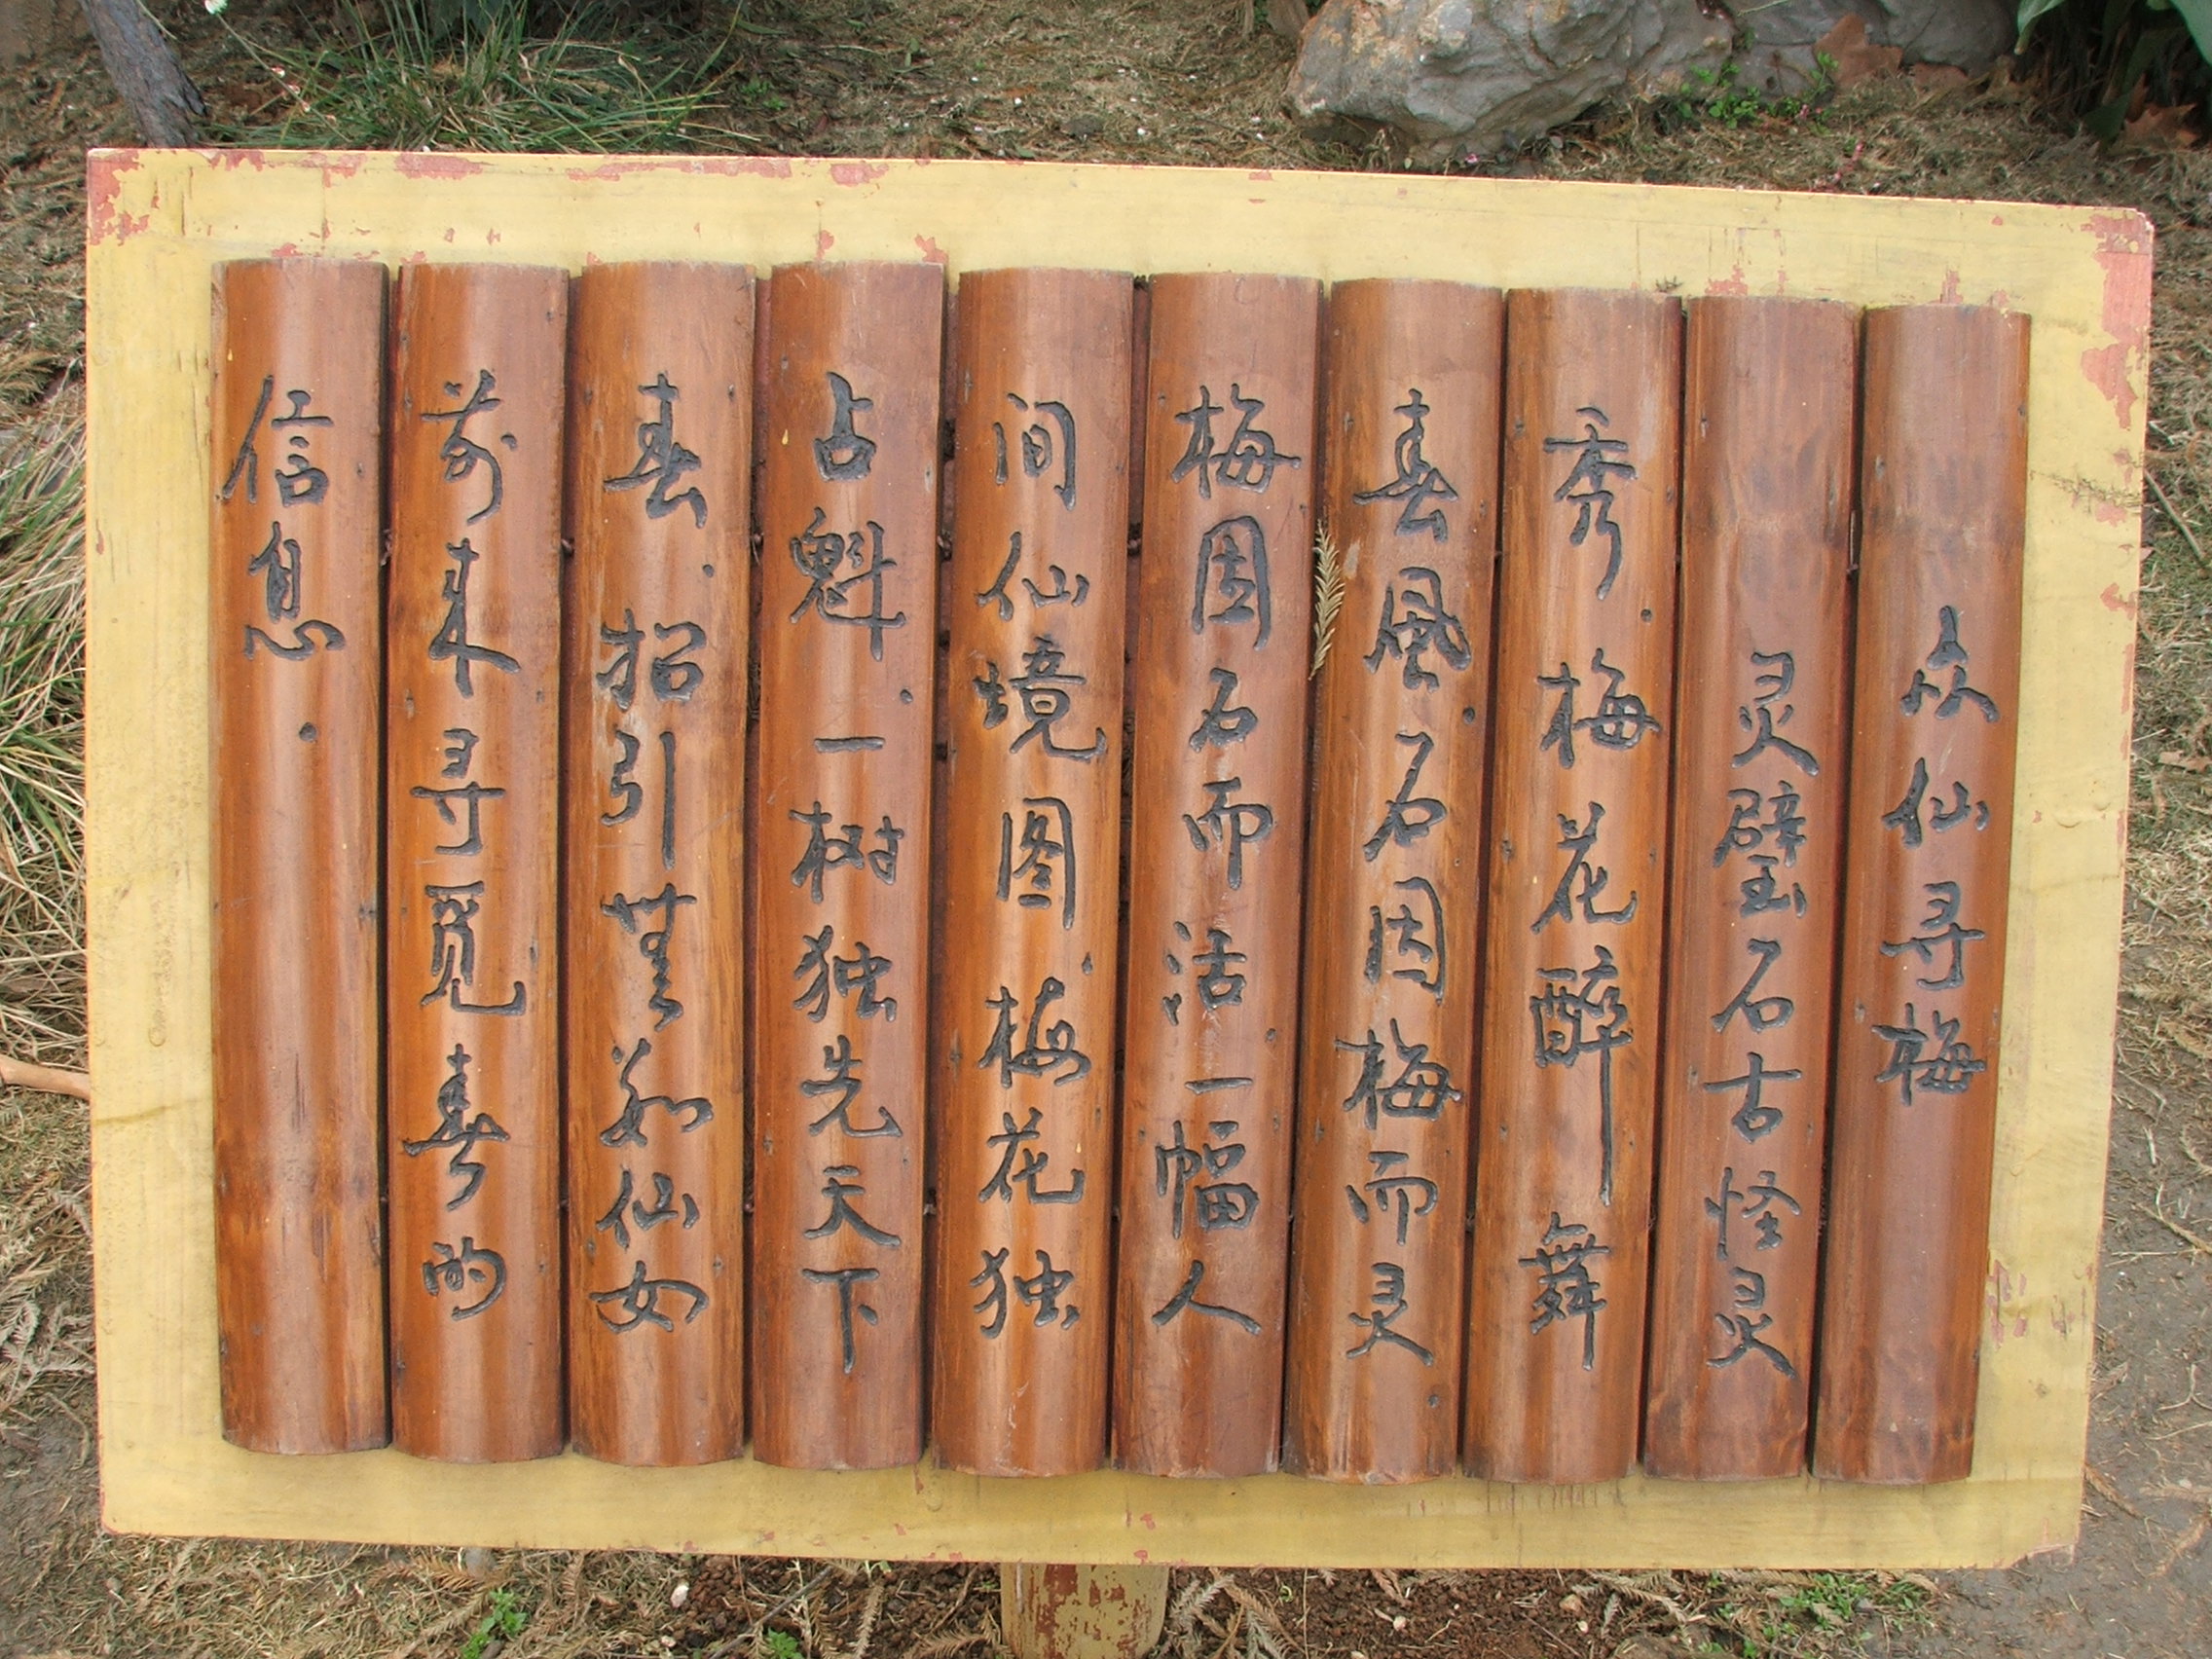 众仙寻梅
灵璧石古怪灵
秀.梅花醉舞
春風.石因梅而灵
梅因石而活一幅人
间仙境图.梅花独
占魁.一树独先天下
春.招引仙女
前来寻觅春的
信息.